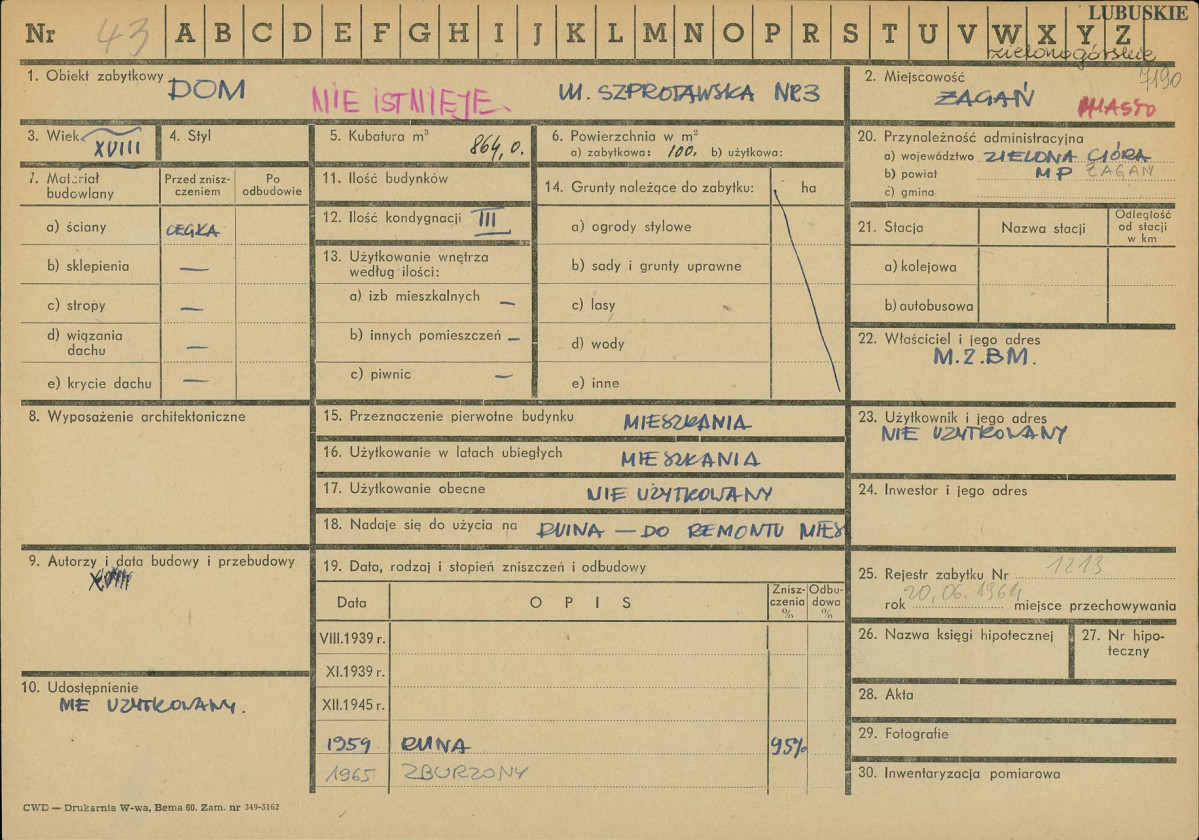 LUBUSKIE
Nr 43 A B C D E F G H I J K L M N O P R S T U V W X Y Z
zielonogórskie
7190
1. Obiekt zabytkowy DOM NIE ISTNIEJE. Ul. SZPROTAWSKA NR 3
2. Miejscowość ŻAGAŃ MIASTO
3. Wiek XVIII
4. Styl
5. Kubatura m³ 864,0.
6. Powierzchnia w m²
a) zabytkowa: 100. b) użytkowa:
20. Przynależność administracyjna
a) województwo ZIELONA GÓRA
b) powiat MP ŻAGAŃ
c) gmina
7. Materiał budowlany
Przed znisz-
czeniem
Po
odbudowie
a) ściany CEGŁA
b) sklepienia —
c) stropy —
d) wiązania
dachu —
e) krycie dachu —
11. Ilość budynków
12. Ilość kondygnacji III
13. Użytkowanie wnętrza
według ilości:
a) izb mieszkalnych —
b) innych pomieszczeń —
c) piwnic —
14. Grunty należące do zabytku: ha
a) ogrody stylowe
b) sady i grunty uprawne
c) lasy
d) wody
e) inne
21. Stacja Nazwa stacji
Odległość
od stacji
w km
a) kolejowa
b) autobusowa
22. Właściciel i jego adres
M.Z.B.M.
8. Wyposażenie architektoniczne
15. Przeznaczenie pierwotne budynku MIESZKANIA
16. Użytkowanie w latach ubiegłych MIESZKANIA
17. Użytkowanie obecne NIE UŻYTKOWANY
18. Nadaje się do użycia na RUINA — DO REMONTU MIES
23. Użytkownik i jego adres
NIE UŻYTKOWANY
24. Inwestor i jego adres
9. Autorzy i data budowy i przebudowy
XVIII
19. Data, rodzaj i stopień zniszczeń i odbudowy
Data OPIS
Znisz-
czenia
%
Odbu-
dowa
%
VIII.1939 r.
XI.1939 r.
XII.1945 r.
1959 RUINA 95%
1965 ZBURZONY
25. Rejestr zabytku Nr 1213
rok 20.06.1964 miejsce przechowywania
26. Nazwa księgi hipotecznej
27. Nr hipo-
teczny
10. Udostępnienie
NIE UŻYTKOWANY.
28. Akta
29. Fotografie
30. Inwentaryzacja pomiarowa
CWD — Drukarnia W-wa, Bema 60. Zam. nr 349-5162